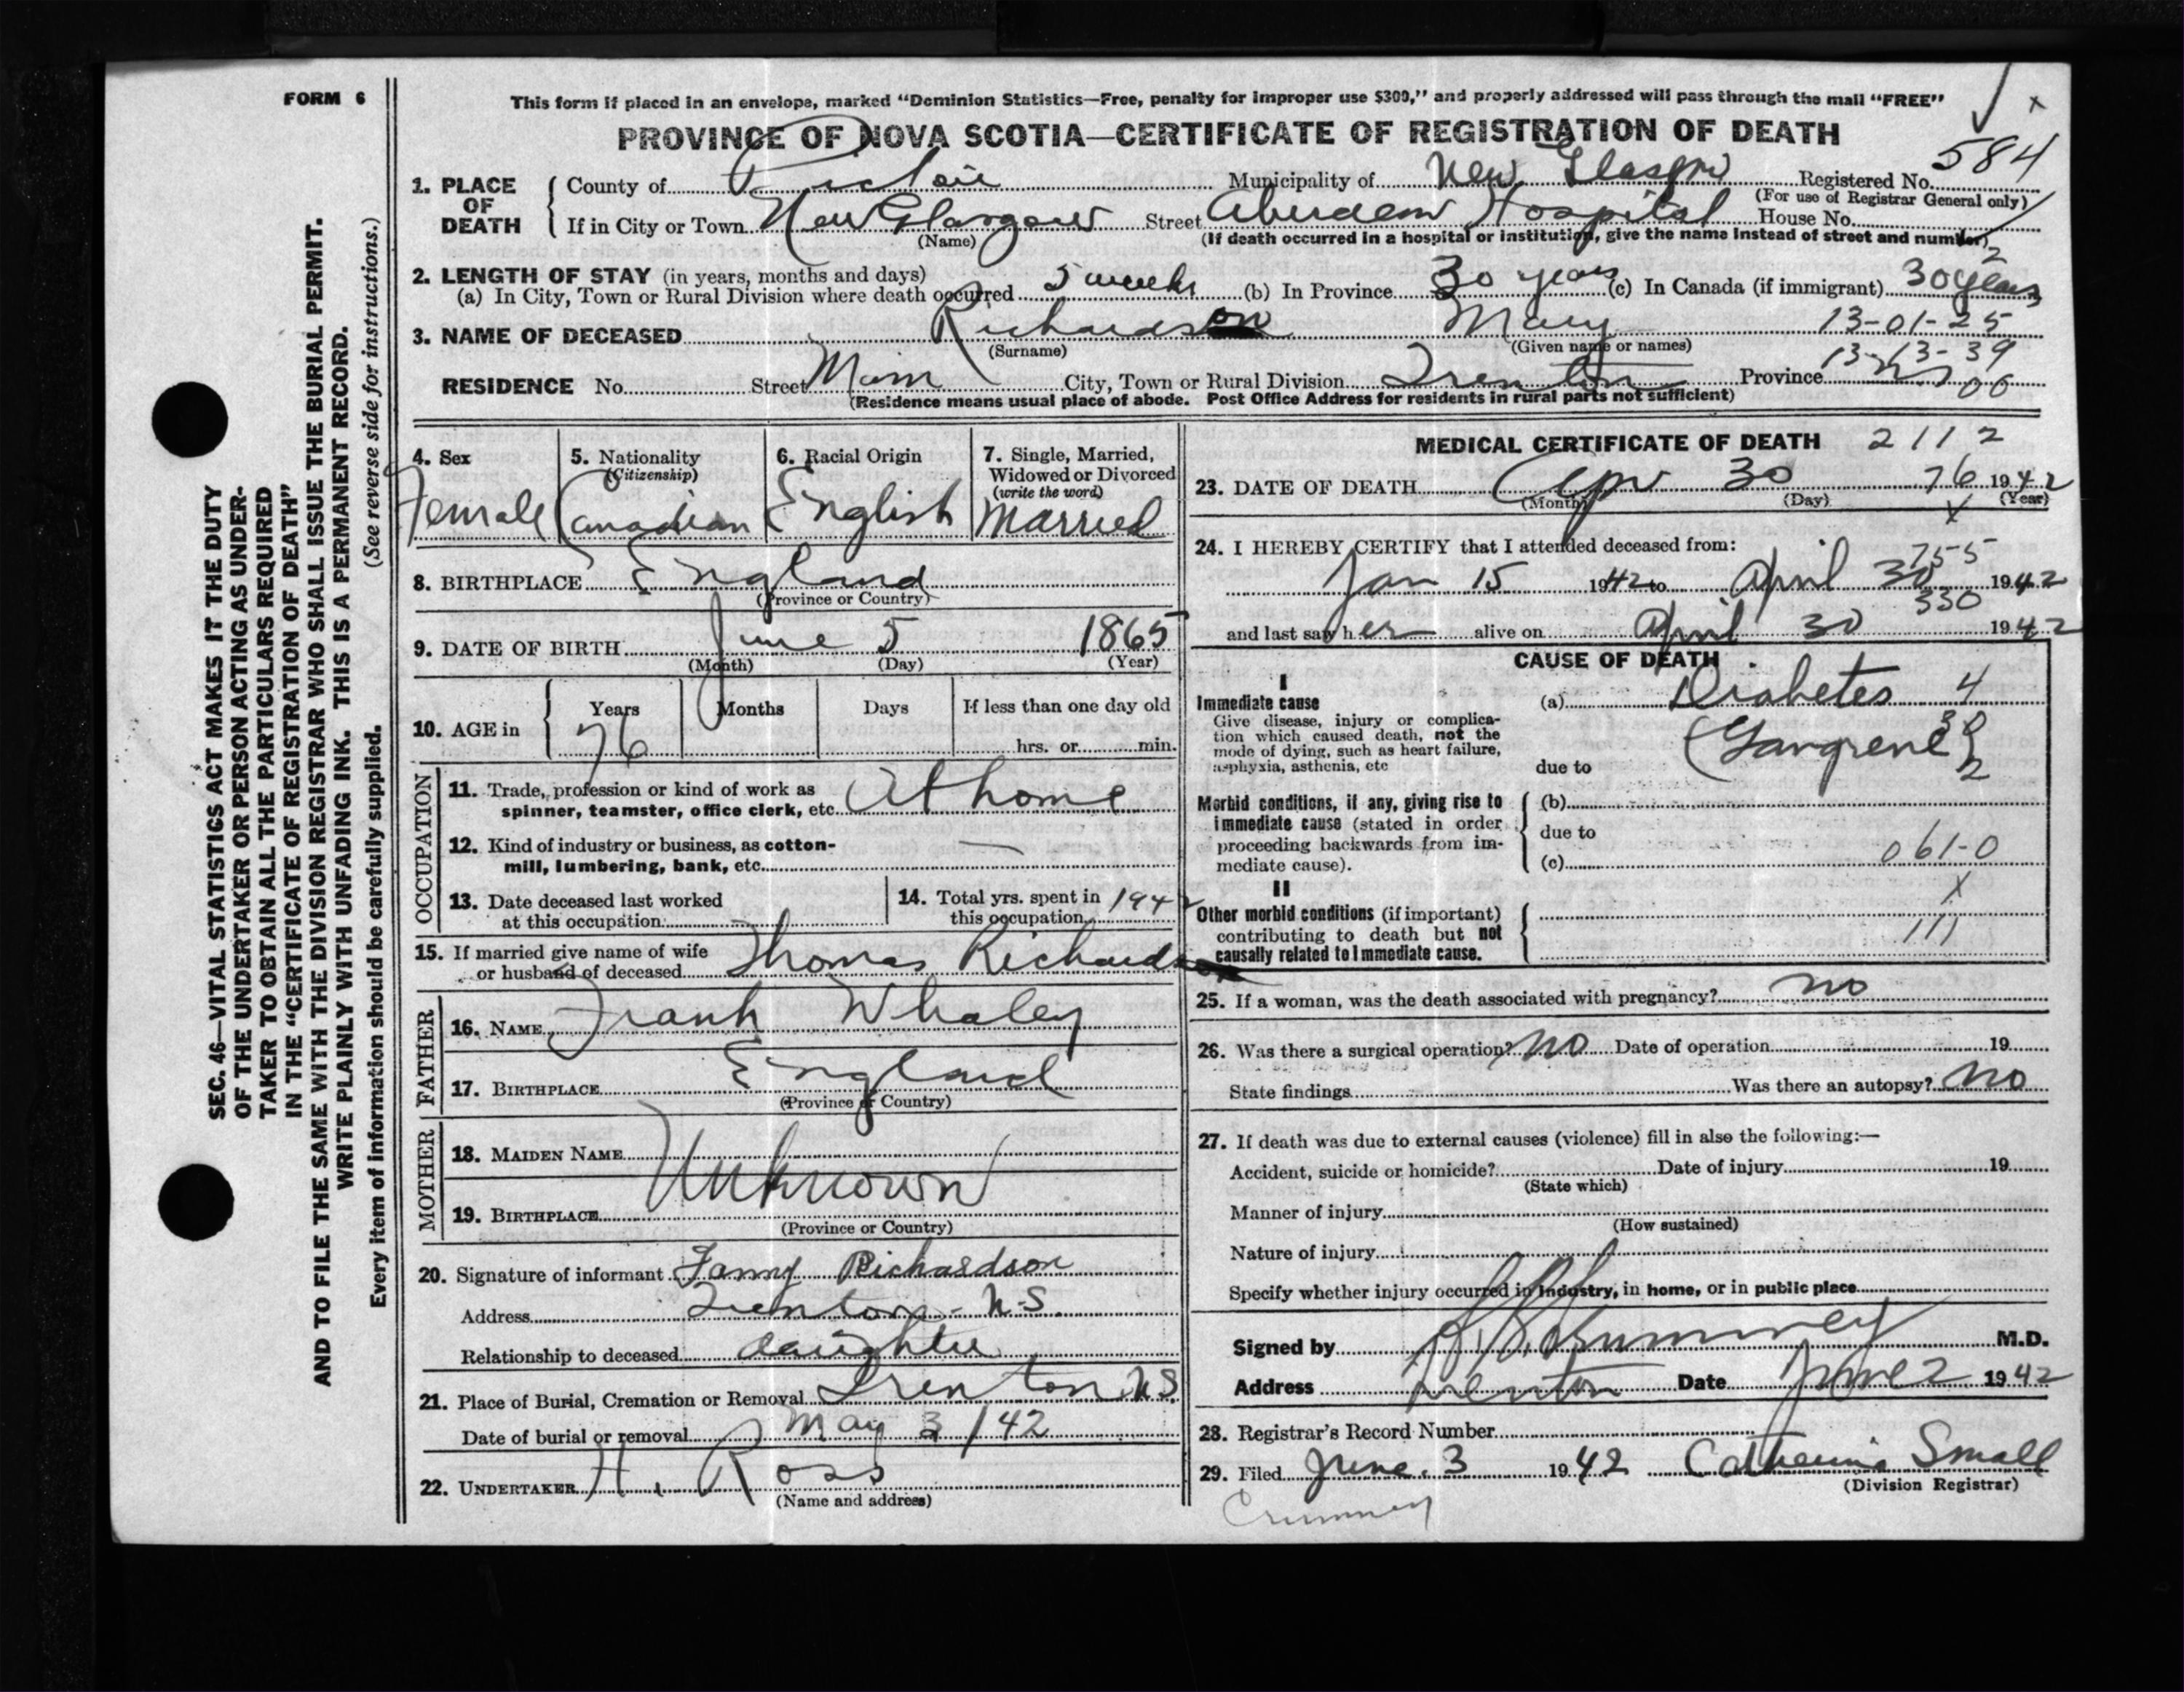 FORM 6
This form if placed in an envelope, marked "Dominion Statistics—Free, penalty for improper use $300," and properly addressed will pass through the mail "FREE"
PROVINCE OF NOVA SCOTIA—CERTIFICATE OF REGISTRATION OF DEATH
584
1. PLACE OF DEATH { County of Pictou Municipality of New Glasgow Registered No.
(For use of Registrar General only)
If in City or Town New Glasgow Street Aberdeen Hospital House No.
(Name) (If death occurred in a hospital or institution, give the name instead of street and number)
2
2. LENGTH OF STAY (in years, months and days)
(a) In City, Town or Rural Division where death occurred 5 weeks (b) In Province 30 years (c) In Canada (if immigrant) 30 years
3. NAME OF DECEASED Richardson Mary 13-01-25
(Surname) (Given name or names)
13-13-39
RESIDENCE No. Street Main City, Town or Rural Division Trenton Province NS 00
(Residence means usual place of abode. Post Office Address for residents in rural parts not sufficient)
4. Sex 5. Nationality (Citizenship) 6. Racial Origin 7. Single, Married, Widowed or Divorced (write the word)
Female Canadian English Married
8. BIRTHPLACE England
(Province or Country)
9. DATE OF BIRTH June 5 1865
(Month) (Day) (Year)
10. AGE in { Years Months Days If less than one day old
76 hrs. or min.
OCCUPATION
11. Trade, profession or kind of work as spinner, teamster, office clerk, etc. At home
12. Kind of industry or business, as cotton-mill, lumbering, bank, etc. —
13. Date deceased last worked at this occupation
14. Total yrs. spent in this occupation 1942
15. If married give name of wife or husband of deceased Thomas Richardson
FATHER
16. NAME Frank Whaley
17. BIRTHPLACE England
(Province or Country)
MOTHER
18. MAIDEN NAME
Unknown
19. BIRTHPLACE
(Province or Country)
20. Signature of informant Fanny Richardson
Address Trenton - N-S
Relationship to deceased daughter
21. Place of Burial, Cremation or Removal Trenton N.S.
Date of burial or removal May 3/42
22. UNDERTAKER H. Ross
(Name and address)
MEDICAL CERTIFICATE OF DEATH 2112
23. DATE OF DEATH Apr 30 76 1942
(Month) (Day) (Year)
X
24. I HEREBY CERTIFY that I attended deceased from:
755
Jan 15 1942 to April 30 1942
330
and last saw her alive on April 30 1942
CAUSE OF DEATH
I
Immediate cause (a) Diabetes 4
Give disease, injury or complication which caused death, not the mode of dying, such as heart failure, asphyxia, asthenia, etc
30
due to Gangrene 2
Morbid conditions, if any, giving rise to immediate cause (stated in order proceeding backwards from immediate cause).
(b)
due to
(c) 061-0
II
X
Other morbid conditions (if important) contributing to death but not causally related to immediate cause.
111
25. If a woman, was the death associated with pregnancy? no
26. Was there a surgical operation? no Date of operation 19
State findings Was there an autopsy? no
27. If death was due to external causes (violence) fill in also the following:—
Accident, suicide or homicide? Date of injury 19
(State which)
Manner of injury
(How sustained)
Nature of injury
Specify whether injury occurred in industry, in home, or in public place
Signed by Crummey M.D.
Address Trenton Date June 2 1942
28. Registrar's Record Number
29. Filed June 3 1942 Catherine Small
(Division Registrar)
Crummey
SEC. 46—VITAL STATISTICS ACT MAKES IT THE DUTY
OF THE UNDERTAKER OR PERSON ACTING AS UNDER-
TAKER TO OBTAIN ALL THE PARTICULARS REQUIRED
IN THE "CERTIFICATE OF REGISTRATION OF DEATH"
AND TO FILE THE SAME WITH THE DIVISION REGISTRAR WHO SHALL ISSUE THE BURIAL PERMIT.
WRITE PLAINLY WITH UNFADING INK. THIS IS A PERMANENT RECORD.
Every item of information should be carefully supplied. (See reverse side for instructions.)